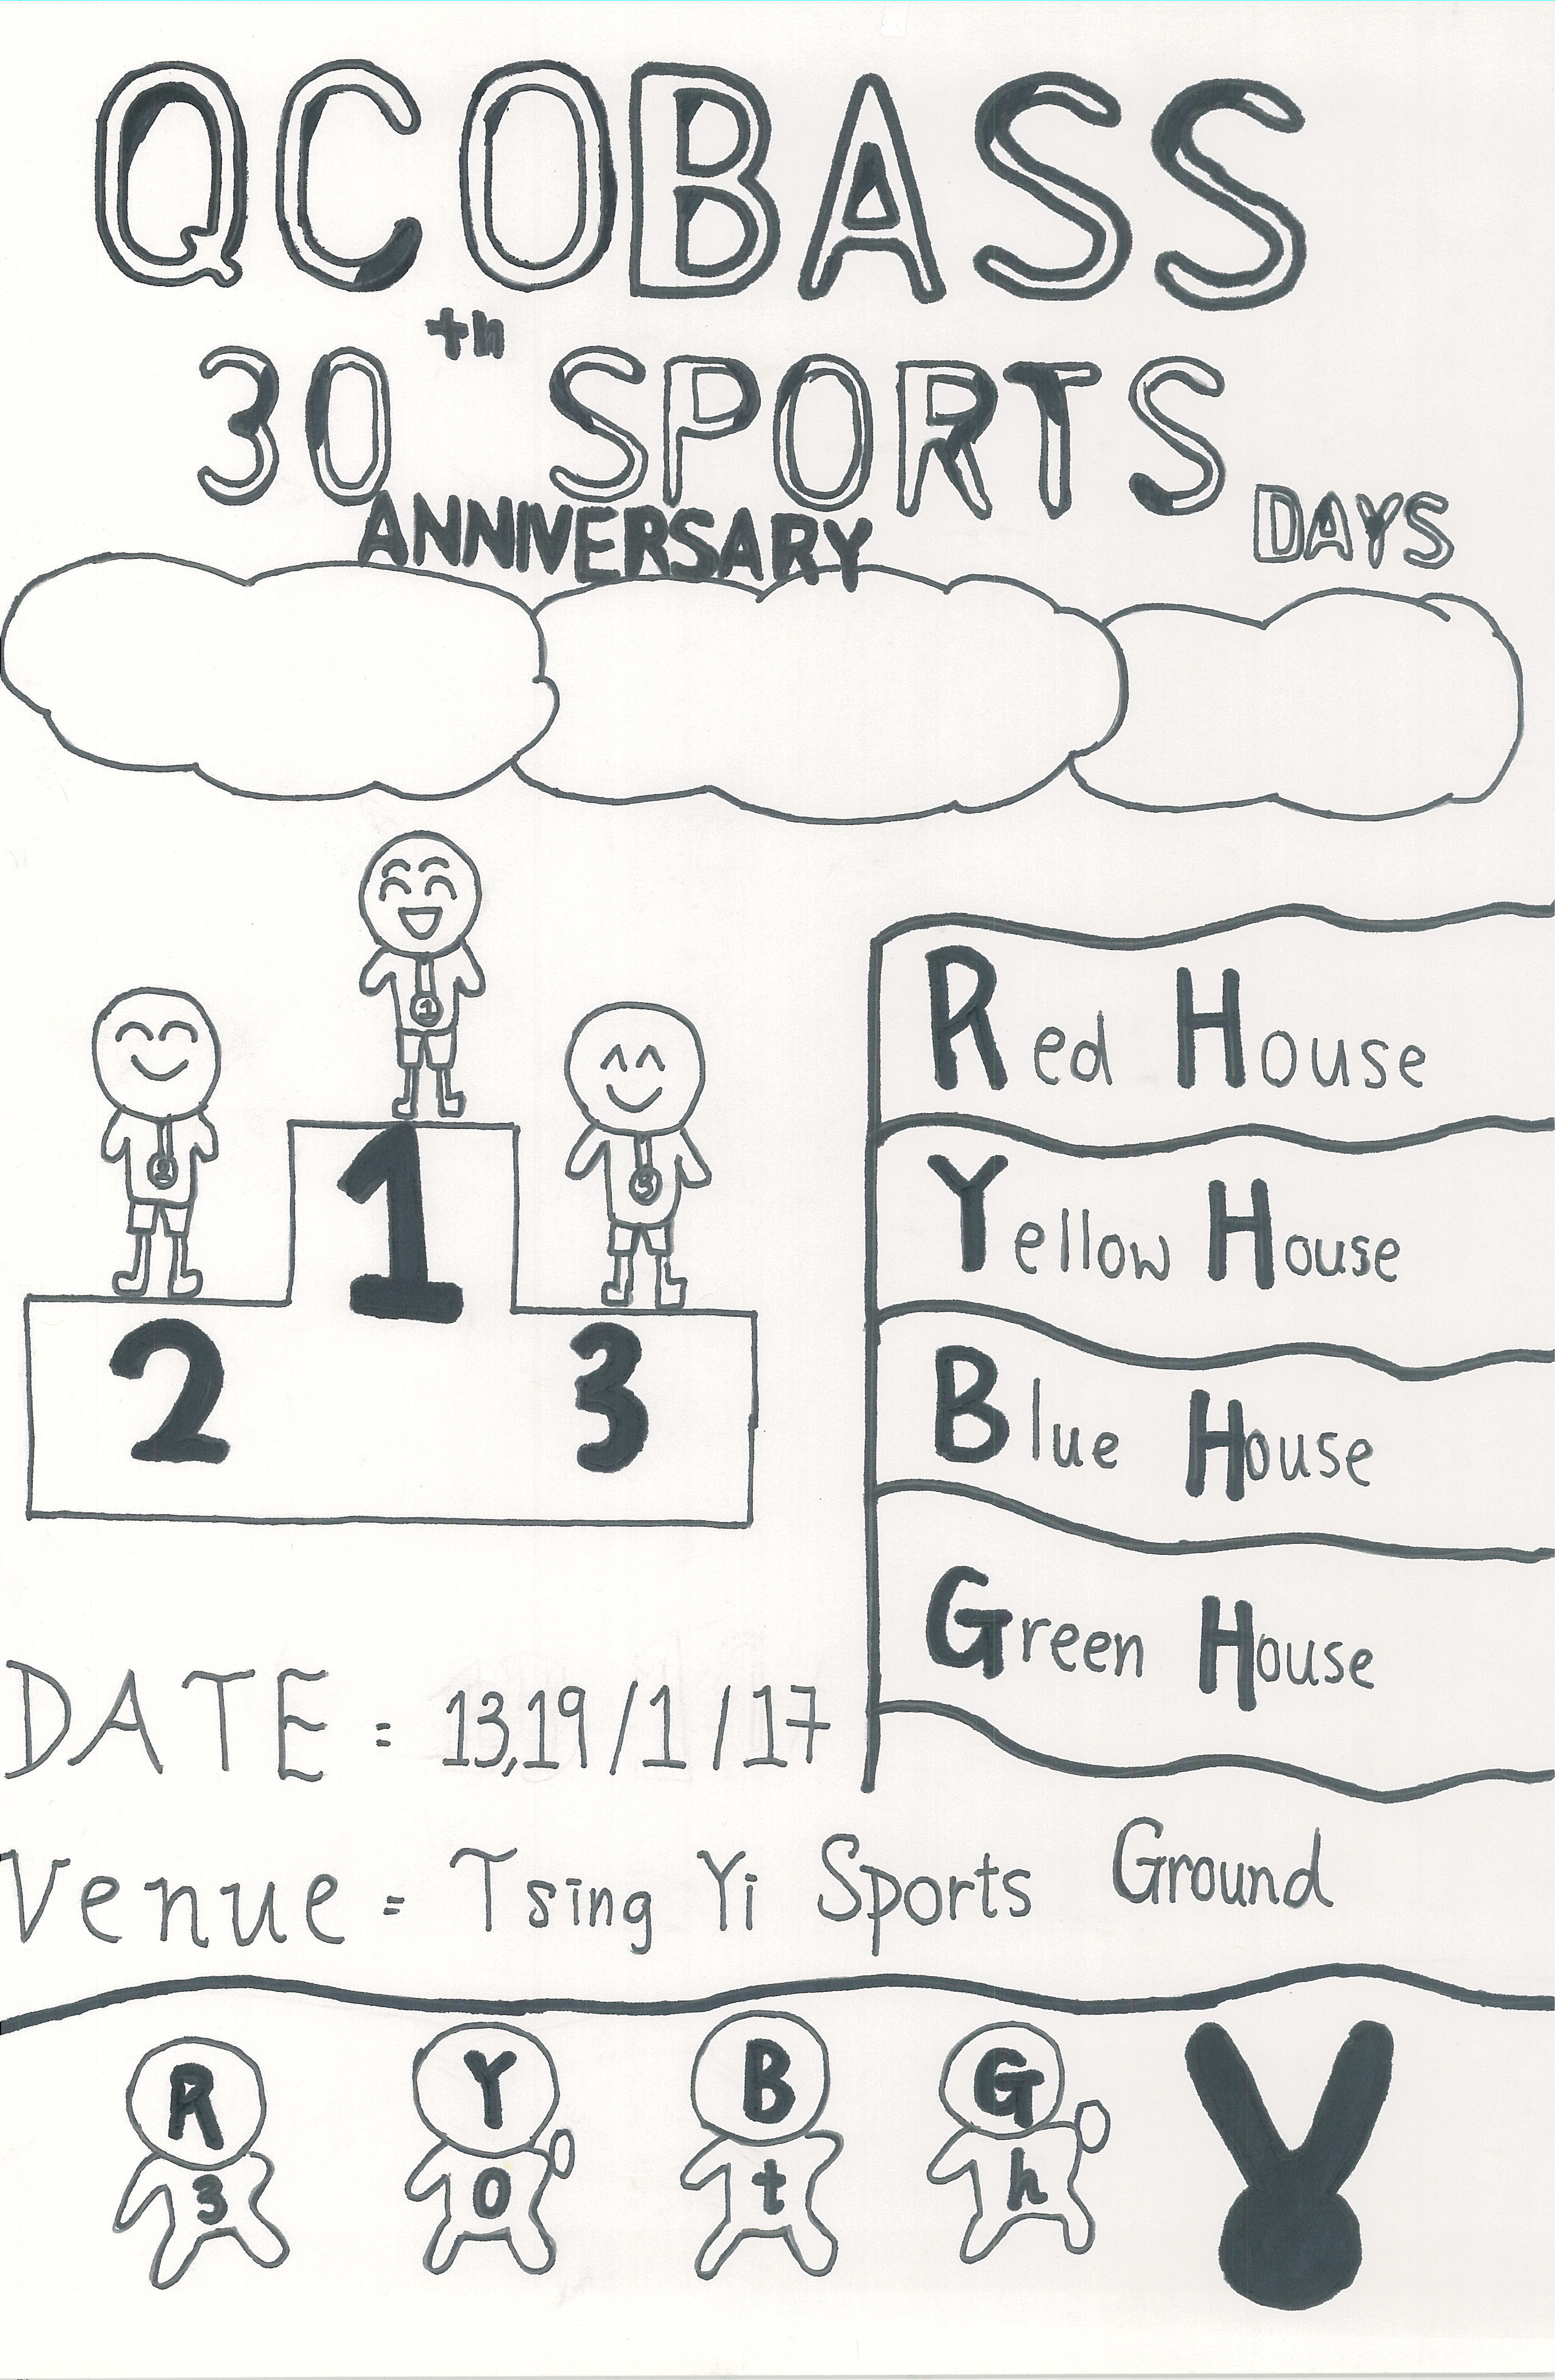 QCOBASS
30th SPORTS
ANNIVERSARY DAYS
1
2
3
1
2
3
Red House
Yellow House
Blue House
Green House
DATE = 13,19/1/17
Venue = Tsing Yi Sports Ground
R Y B G
3 0 t h